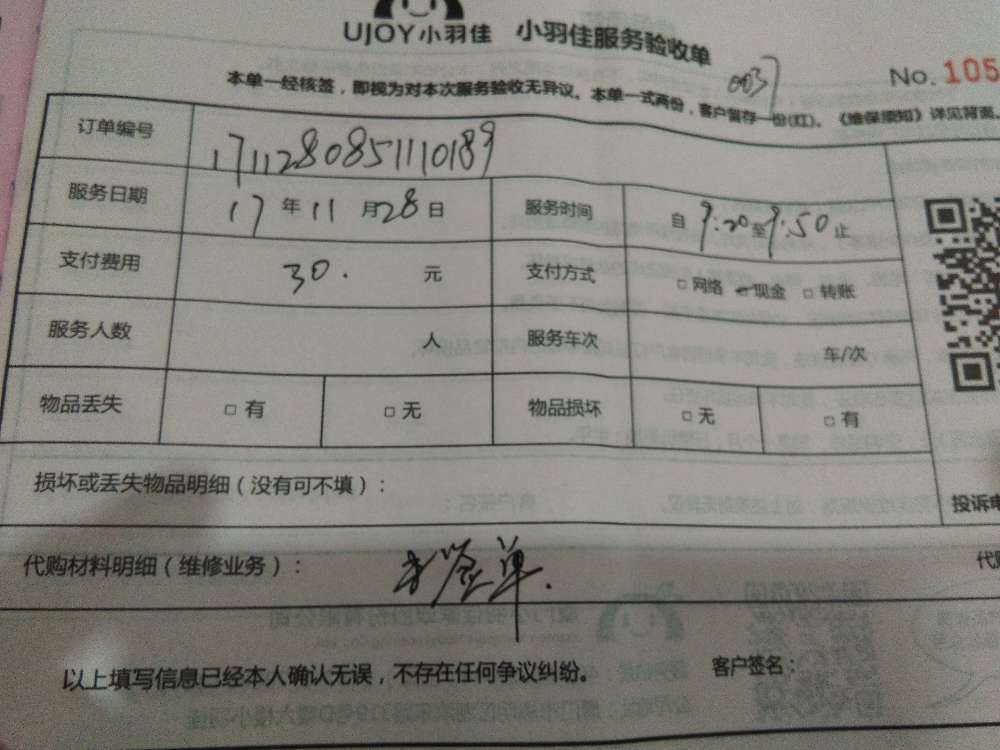 UJOY小羽佳 小羽佳服务验收单
0037
No. 105
本单一经核签，即视为对本次服务验收无异议。本单一式两份，客户留存一份(红)。《维保须知》详见背面。
订单编号 1711280851110189
服务日期 17 年 11 月 28 日 服务时间 自 9:20 至 9:50 止
支付费用 30. 元 支付方式 □ 网络 现金 □ 转账
服务人数 人 服务车次 车/次
物品丢失 □ 有 □ 无 物品损坏 □ 无 □ 有
损坏或丢失物品明细（没有可不填）：
投诉电
代购材料明细（维修业务）： 未签单. 代购
以上填写信息已经本人确认无误，不存在任何争议纠纷。 客户签名：